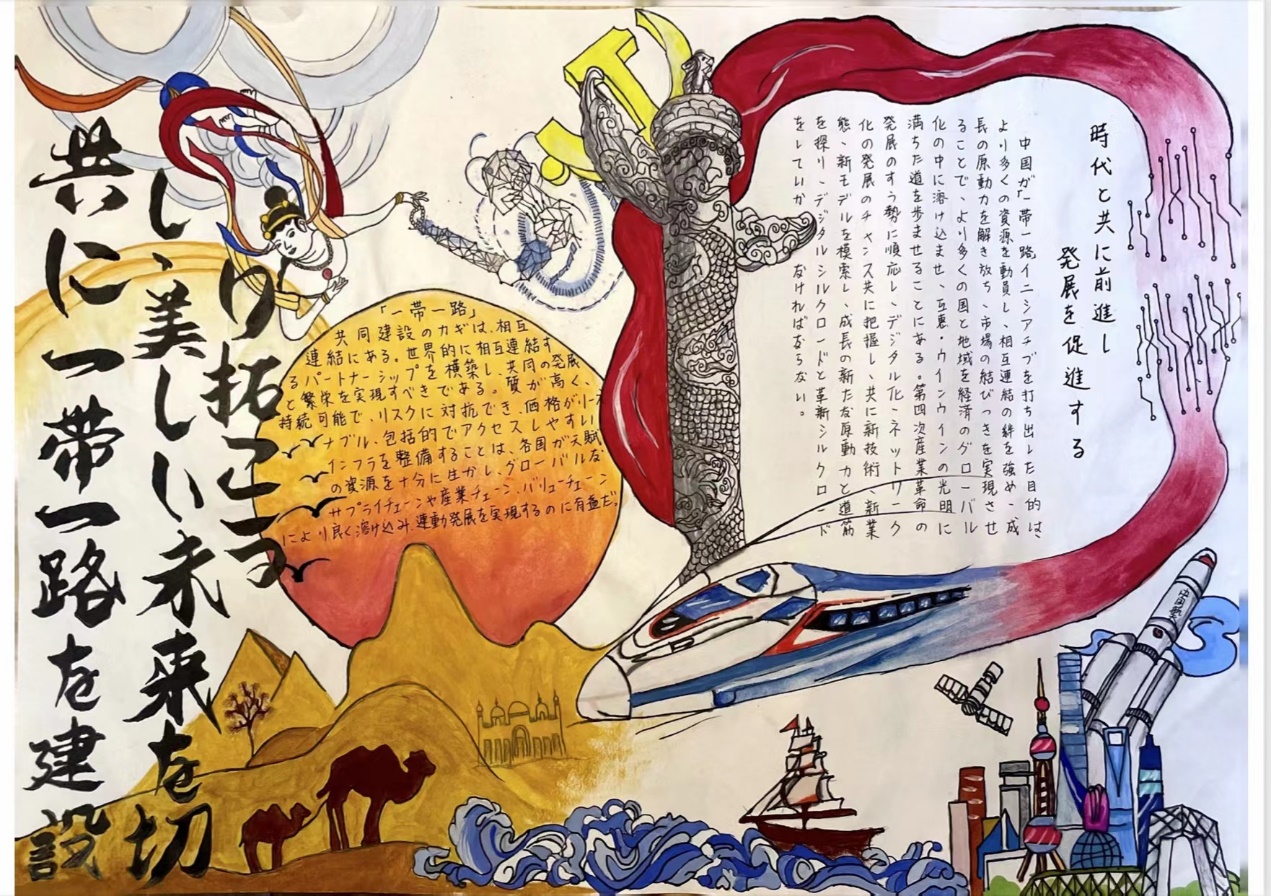 共に一帯一路を建設
し、美しい未来を切
り拓こう
「一帯一路」
共同建設のカギは、相互
連結にある。世界的に相互連結す
るパートナーシップを構築し、共同の発展
と繁栄を実現すべきである。質が高く、
持続可能で、リスクに対抗でき、価格がリーズ
ナブル、包括的でアクセスしやすい
インフラを整備することは、各国が天賦
の資源を十分に生かし、グローバルな
サプライチェーンや産業チェーン、バリューチェーン
により良く溶け込み、連動発展を実現するのに有益だ。
時代と共に前進し
発展を促進する
中国が「一帯一路イニシアチブを打ち出した目的は
より多くの資源を動員し、相互連結の絆を強め、成
長の原動力を解き放ち、市場の結びつきを実現させ
ることで、より多くの国と地域を経済のグローバル
化の中に溶け込ませ、互恵・ウインウインの光明に
満ちた道を歩ませることにある。第四次産業革命の
発展のすう勢に順応し、デジタル化、ネットワーク
化の発展のチャンス共に把握し、共に新技術、新業
態、新モデルを模索し、成長の新たな原動力と道筋
を探り、デジタルシルクロードと革新シルクロード
をしていかなければならない。